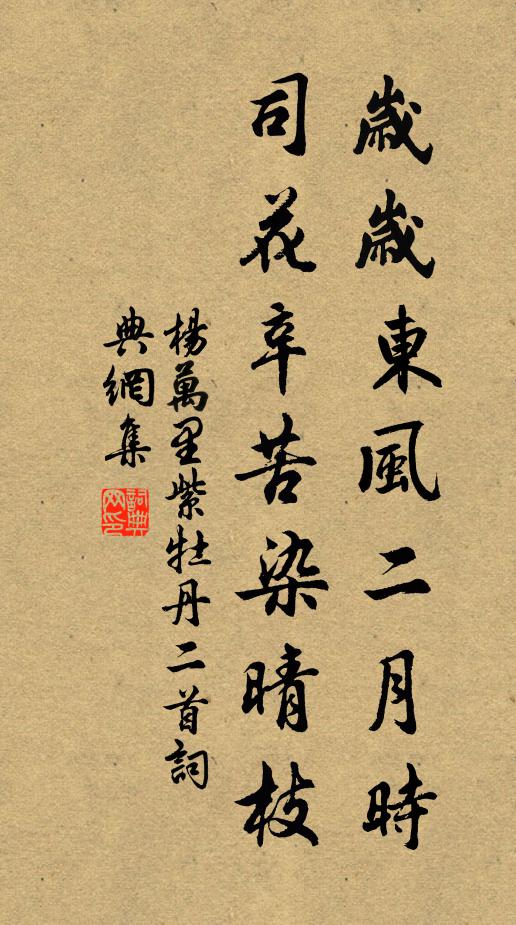 歲歲東風二月時
司花辛苦染晴枝
楊萬里紫牡丹二首詞
典網集
詞典網印